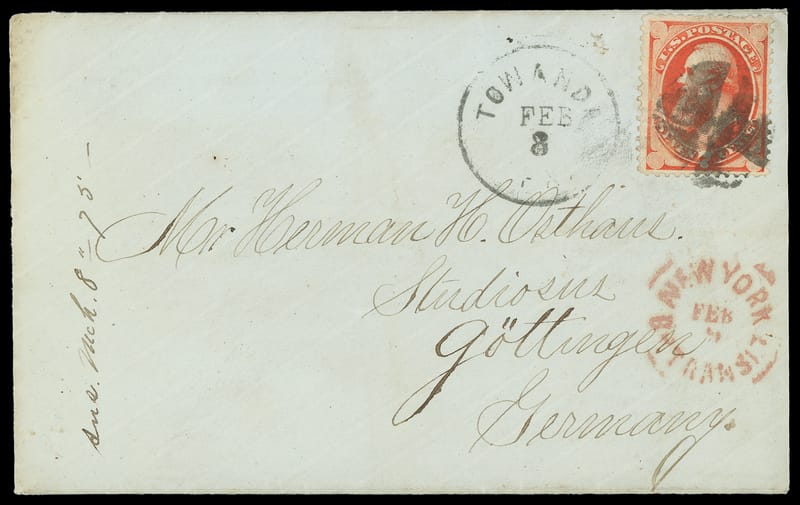 U.S. POSTAGE
TOWANDA
FEB
8
Mr Herman H. Osthaus.
Studiosus
Göttingen
Germany.
NEW YORK
FEB
TRANSIT
ans. Mch. 8" 75 –